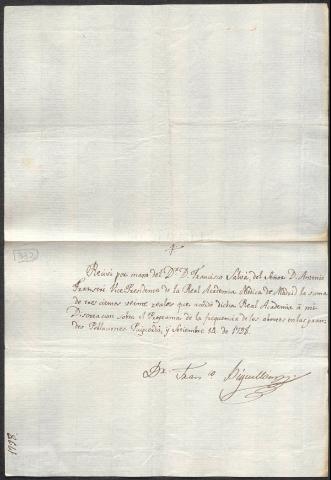 Recivi por mano del Dr. D. Francisco Salvá, del Señor D. Antonio
Franseri Vice-Presidente de la Real Academia Medica de Madrid la suma
de tres cientos veinte reales que dicha Real Academia à mi
Disertacion sobre el Programa de la frequencia de los abortos en las gran-
des Poblaciones Puigcerdà, y Setiembre 12 de 1798.
Dr. Franco
1798.